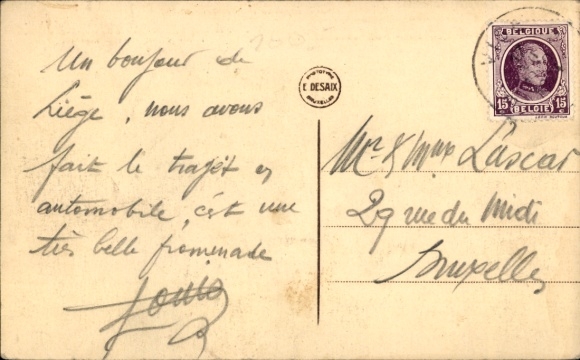 Un bonjour de
Liège, nous avons
fait le trajet en
automobile, c'est une
très belle promenade
Louis
PHOTOTYPIE
E DESAIX
BRUXELLES
BELGIQUE
15 BELGIË 15
Mr & Mme Lascar
29 rue du Midi
Bruxelles